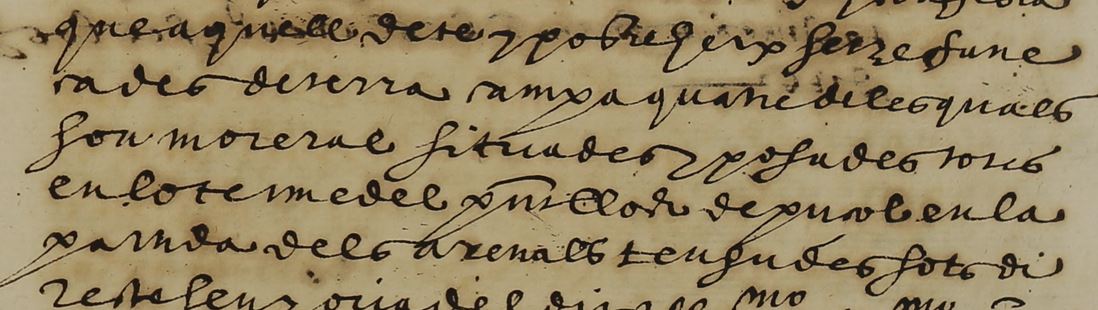 que aquell dete y posseheix setze fane
cades de terra campa quatre de les quals
son moreral situades y posades totes
en lo terme del pnt lloch de puçol en la
partida dels arenals tengudes sots di
recte senyoria del